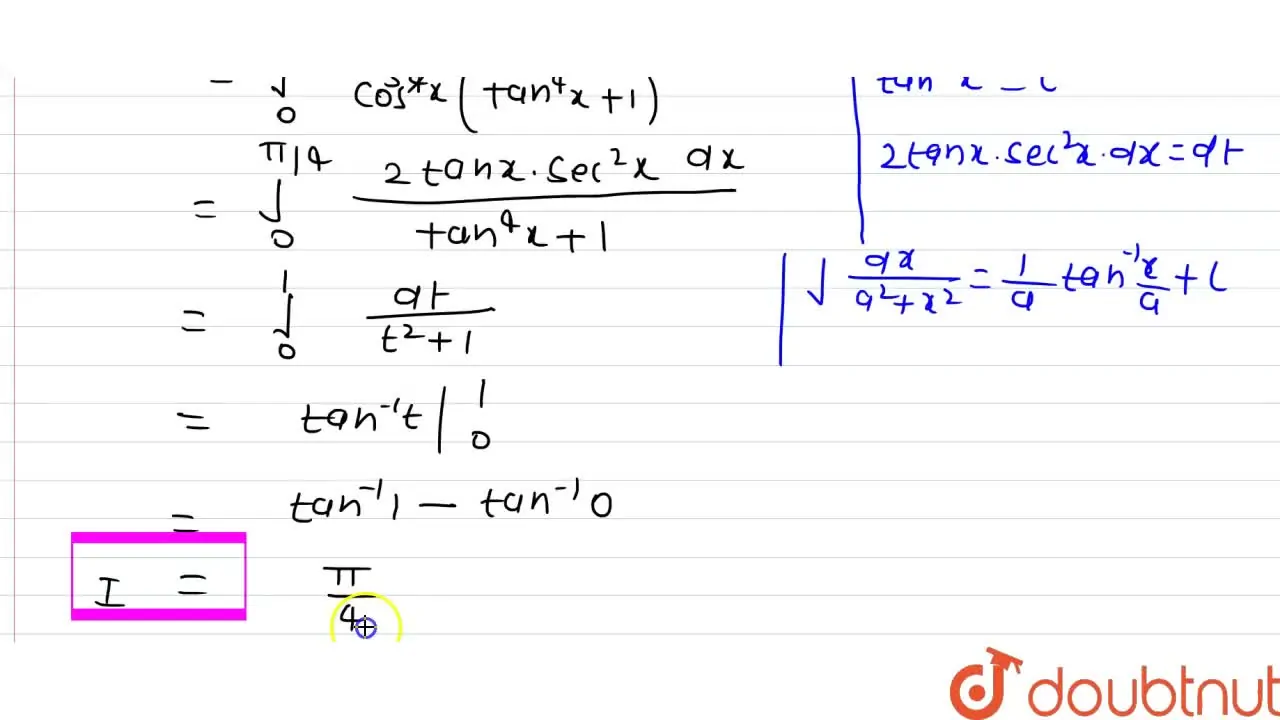 = ∫ 0 cos⁴x (tan⁴x + 1)
= ∫ 0 π/4 2 tanx · sec²x dx / tan⁴x + 1
= ∫ 0 1 dt / t² + 1
= tan⁻¹t | 1 0
= tan⁻¹1 − tan⁻¹0
I = π/4
2tanx·sec²x·dx = dt
∫ dx / a² + x² = 1/a tan⁻¹ x/a + C
doubtnut